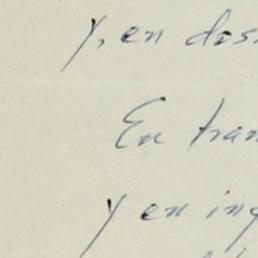 y, en dos
En tran
y en ing